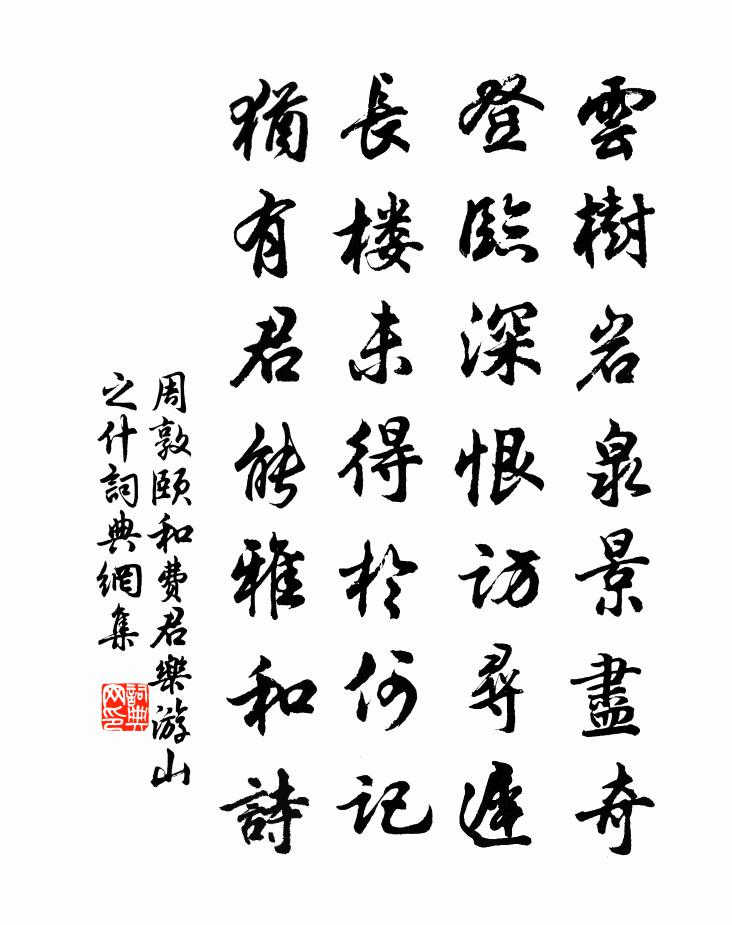 雲樹岩泉景盡奇
登臨深恨訪尋遲
長楼未得於何記
猶有君能雅和詩
周敦頤和費君樂游山
之什詞典網集
詞典网印